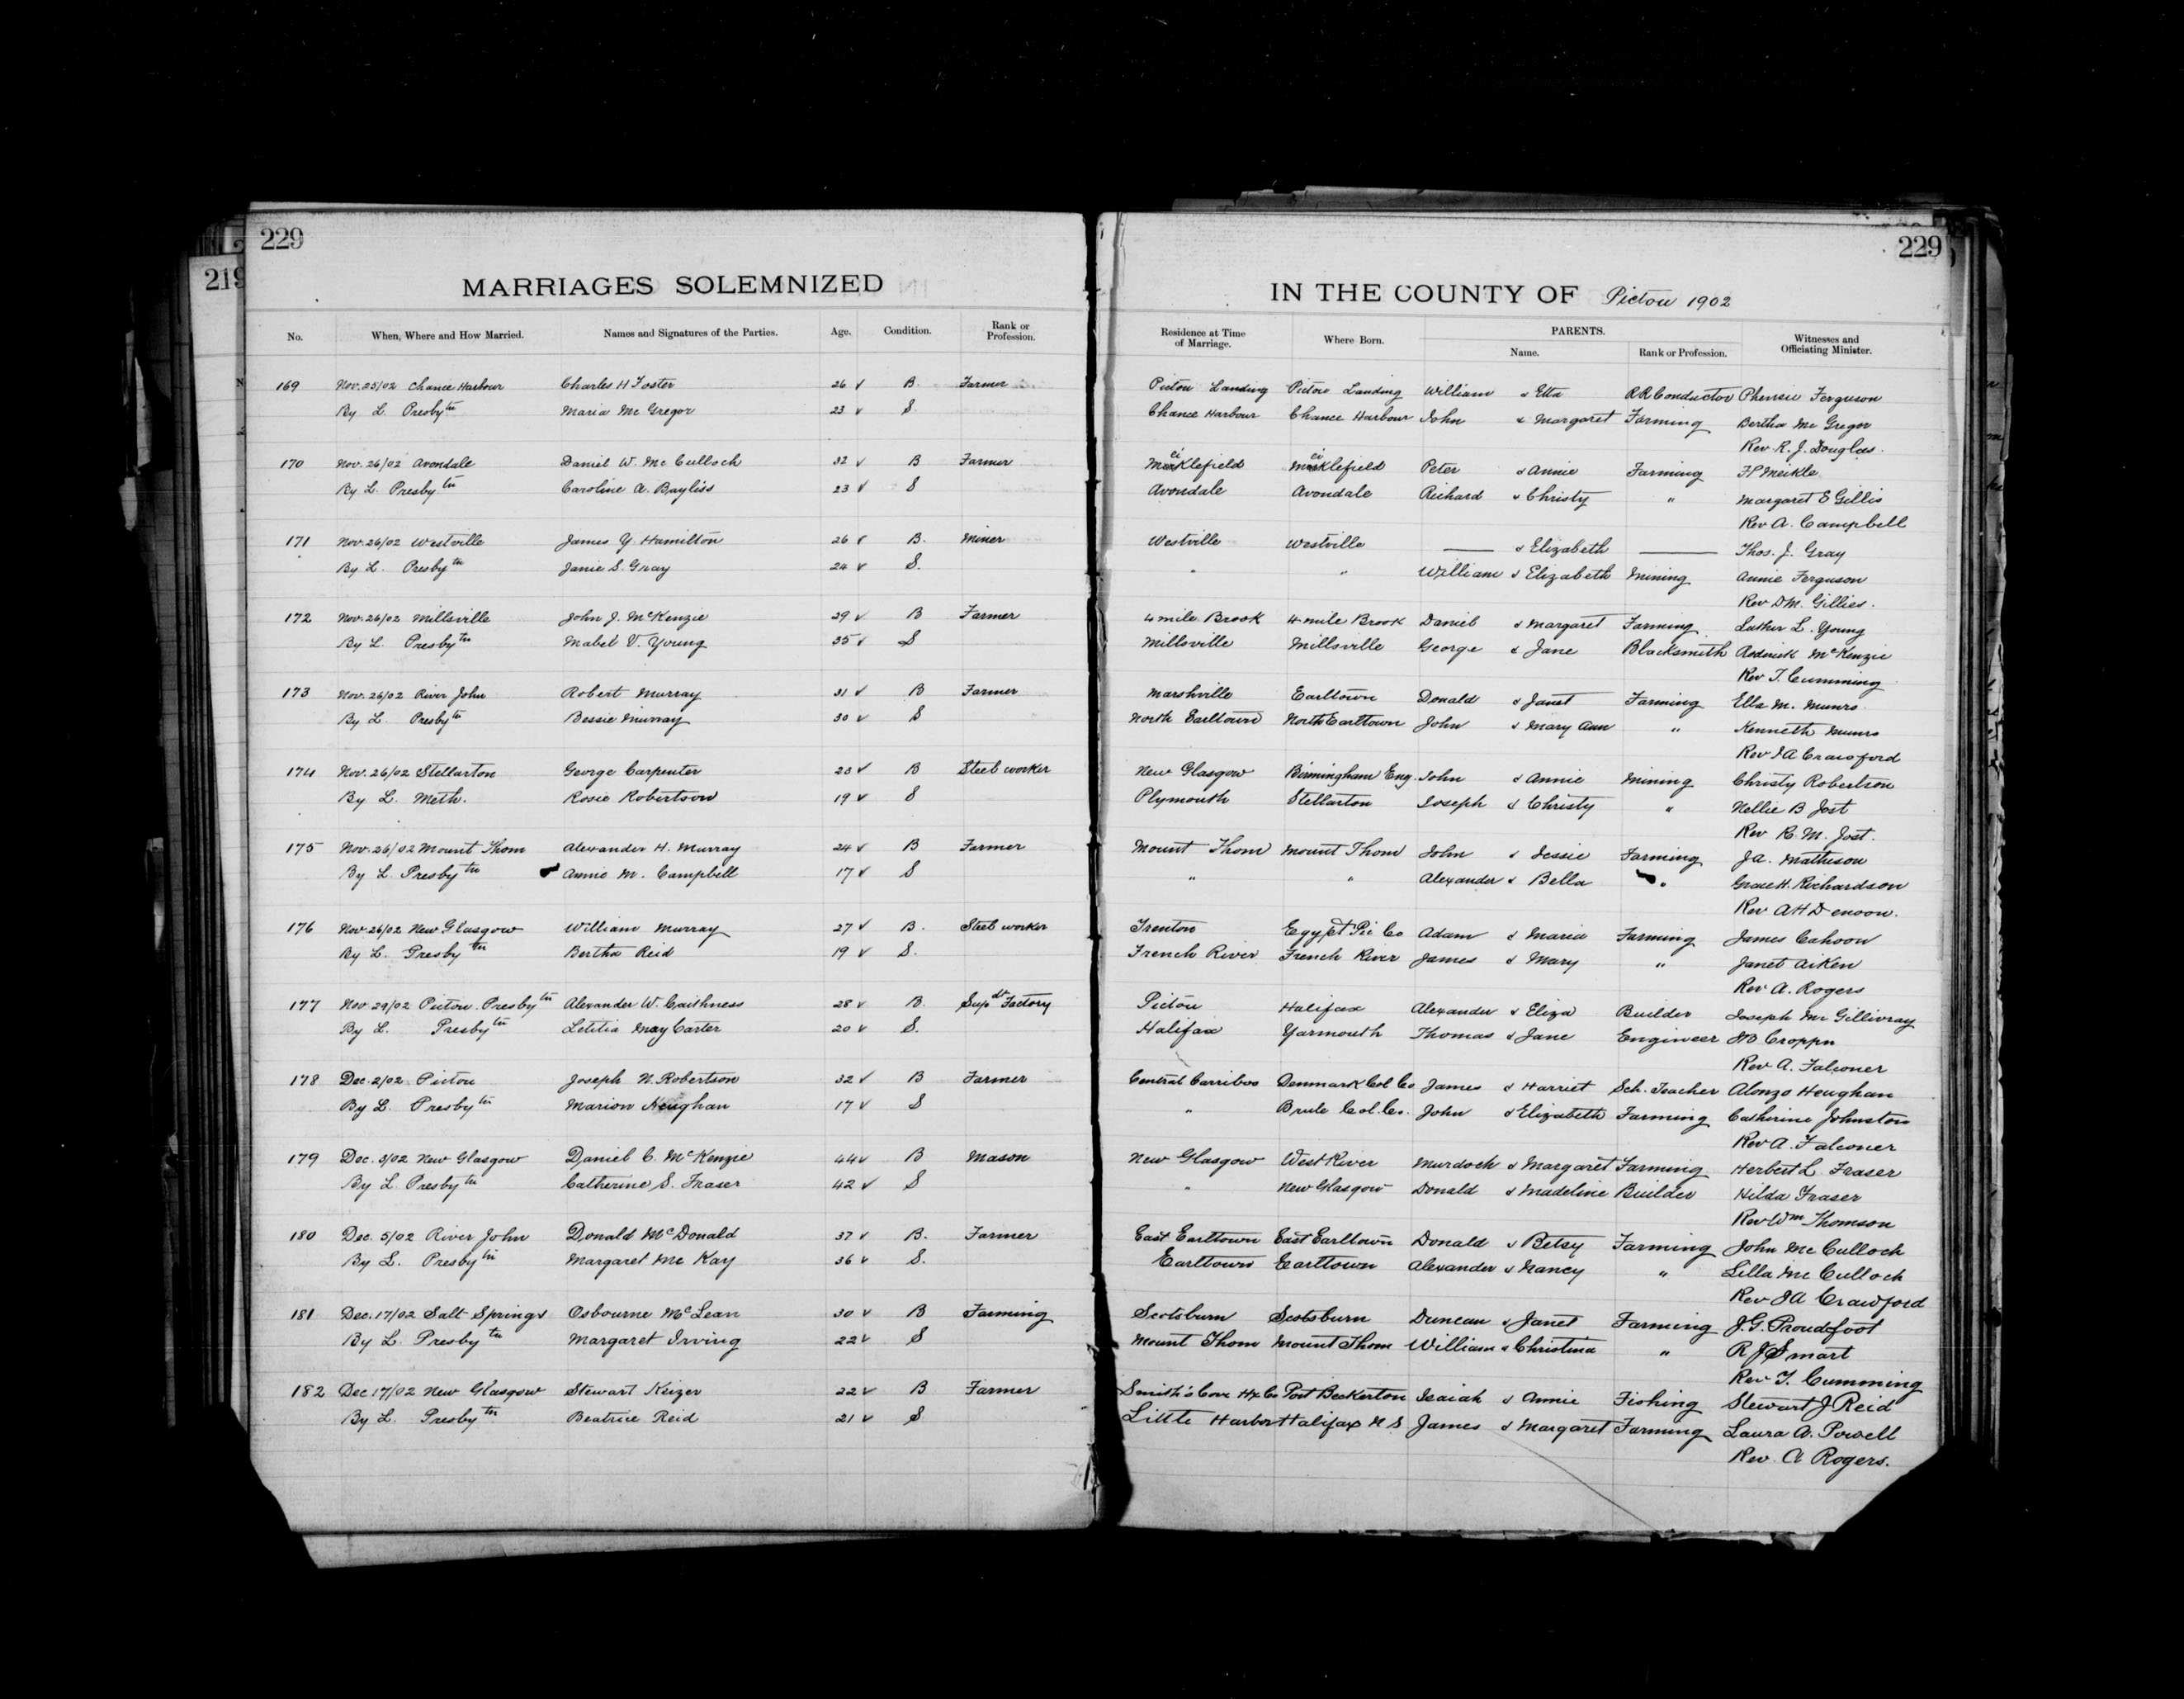 229
219
MARRIAGES SOLEMNIZED
No. When, Where and How Married. Names and Signatures of the Parties. Age. Condition. Rank or Profession.
169 Nov. 25/02 Chance Harbour Charles H Foster 26 ✓ B. Farmer
By L. Presbytn Maria Mc Gregor 23 ✓ S.
170 Nov. 26/02 Avondale Daniel W. Mc Culloch 32 ✓ B Farmer
By L. Presbytn Caroline A. Bayliss 23 ✓ S
171 Nov. 26/02 Westville James Y. Hamilton 26 ✓ B. Miner
By L. Presbytn Janie S. Gray 24 ✓ S.
172 Nov. 26/02 Millsville John J. McKenzie 29 ✓ B Farmer
By L. Presbytn Mabel V. Young 35 ✓ S
173 Nov. 26/02 River John Robert Murray 31 ✓ B Farmer
By L. Presbytn Bessie Murray 30 ✓ S
174 Nov. 26/02 Stellarton George Carpenter 23 ✓ B Steel worker
By L. Meth. Rosie Robertson 19 ✓ S
175 Nov. 26/02 Mount Thom Alexander H. Murray 24 ✓ B Farmer
By L. Presbytn Annie M. Campbell 17 ✓ S
176 Nov. 26/02 New Glasgow William Murray 27 ✓ B. Steel worker
By L. Presbytn Bertha Reid 19 ✓ S.
177 Nov. 29/02 Pictou Presbytn Alexander W. Caithness 28 ✓ B. Supdt Factory
By L. Presbytn Letitia May Carter 20 ✓ S.
178 Dec. 2/02 Pictou Joseph N. Robertson 32 ✓ B Farmer
By L. Presbytn Marion Heughan 17 ✓ S
179 Dec. 3/02 New Glasgow Daniel C. McKenzie 44 ✓ B Mason
By L. Presbytn Catherine S. Fraser 42 ✓ S
180 Dec. 5/02 River John Donald McDonald 37 ✓ B. Farmer
By L. Presbytn Margaret Mc Kay 36 ✓ S.
181 Dec. 17/02 Salt Springs Osbourne McLean 30 ✓ B Farming
By L. Presbytn Margaret Irving 22 ✓ S
182 Dec 17/02 New Glasgow Stewart Keizer 22 ✓ B Farmer
By L. Presbytn Beatrice Reid 21 ✓ S
229
IN THE COUNTY OF Pictou 1902
Residence at Time of Marriage. Where Born. PARENTS. Name. Rank or Profession. Witnesses and Officiating Minister.
Pictou Landing Pictou Landing William & Etta RR Conductor Ferguson
Chance Harbour Chance Harbour John & Margaret Farming Bertha Mc Gregor
Rev R. J. Douglas.
Meiklefield Meiklefield Peter & Annie Farming Meikle
Avondale Avondale Richard & Christy " Margaret E Gillis
Rev A. Campbell
Westville Westville — & Elizabeth — Thos. J. Gray
" " William & Elizabeth Mining Annie Ferguson
Rev D M. Gillies.
4 mile Brook 4 mile Brook Daniel & Margaret Farming Luther L. Young
Millsville Millsville George & Jane Blacksmith Roderick McKenzie
Rev T. Cumming
Marshville Earltown Donald & Janet Farming Ella M. Munro
North Earltown North Earltown John & Mary Ann " Kenneth Munro
Rev J A Crawford
New Glasgow Birmingham Eng. John & Annie Mining Christy Robertson
Plymouth Stellarton Joseph & Christy " Nellie B Jost
Rev R. M. Jost.
Mount Thom Mount Thom John & Jessie Farming J A. Matheson
" " Alexander & Bella " Grace H. Richardson
Rev A H Denoon.
Trenton Egypt Pic Co Adam & Maria Farming James Cahoon
French River French River James & Mary " Janet Aiken
Rev A. Rogers
Pictou Halifax Alexander & Eliza Builder Joseph Mc Gillivray
Halifax Yarmouth Thomas & Jane Engineer
Rev A. Falconer
Central Carriboo Denmark Col Co James & Harriet Sch. Teacher Alonzo Heughan
" Brule Col. Co. John & Elizabeth Farming Catherine Johnston
Rev A. Falconer
New Glasgow West River Murdoch & Margaret Farming Herbert L. Fraser
" New Glasgow Donald & Madeline Builder Hilda Fraser
Rev Wm Thomson
East Earltown East Earltown Donald & Betsy Farming John Mc Culloch
Earltown Earltown Alexander & Nancy " Lilla Mc Culloch
Rev J A Crawford
Scotsburn Scotsburn Duncan & Janet Farming J. G. Proudfoot
Mount Thom Mount Thom William & Christina " R J Smart
Rev T. Cumming
Smith's Cove Hx Co Port Beckerton Isaiah & Annie Fishing Stewart J Reid
Little Harbor Halifax N S James & Margaret Farming Laura A. Powell
Rev. A Rogers.